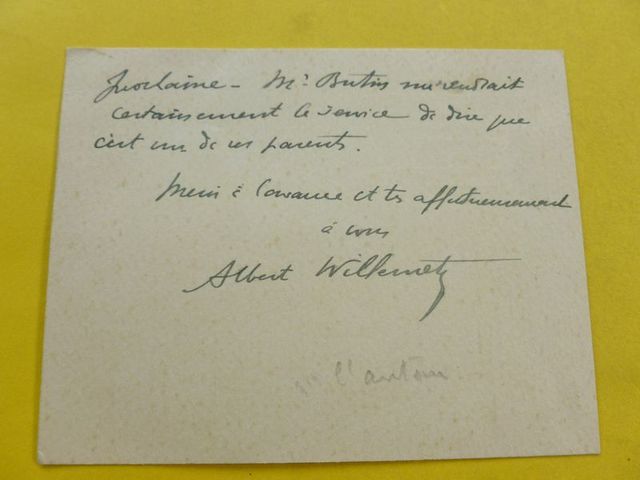 prochaine - Mr Butin me rendrait
certainement le service de dire que
c'est un de ses parents.
Merci à l'avance et ts affectueusement
à vous
Albert Willemetz
l'autom